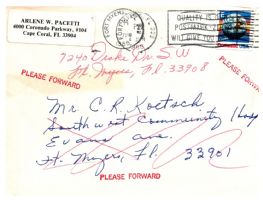 ARLENE W. PACETTI
4000 Coronado Parkway, #104
Cape Coral, FL 33904
FORT MYERS, FL
PM
QUALITY
7240 Drake Dr. S W
Ft. Myers, Fl. 33908
PLEASE FORWARD
PLEASE FORWARD
Mr. C. R. Koetsch
Southwest Community Hosp
Evans ave.
Ft. Myers, Fl. 33901
PLEASE FORWARD